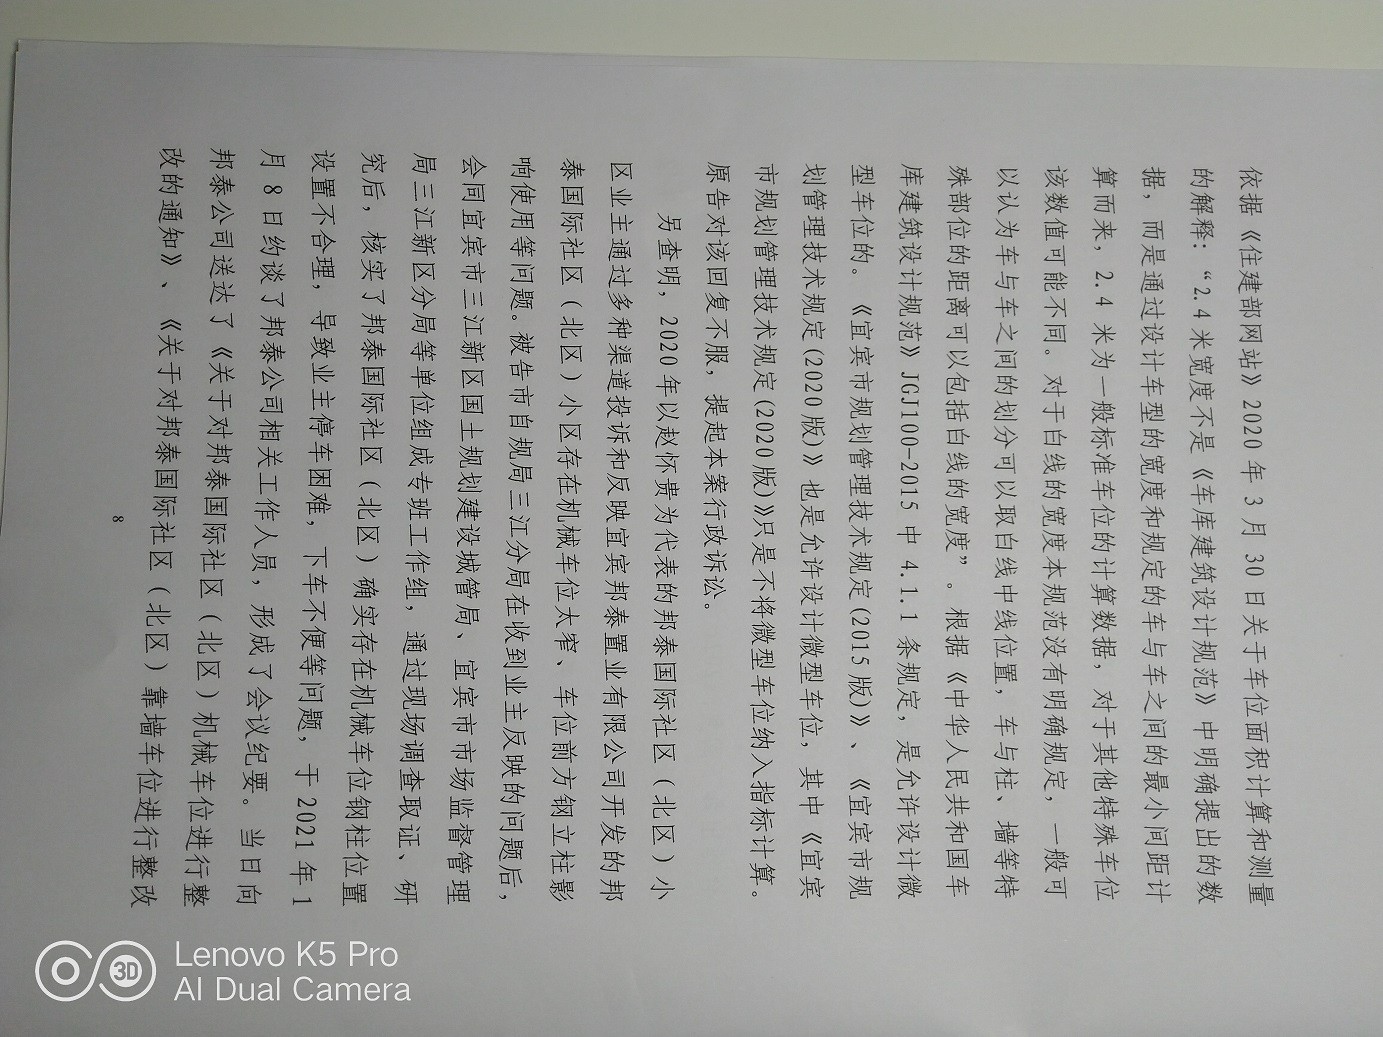 依据《住建部网站》2020 年 3 月 30 日关于车位面积计算和测量
的解释：“2.4 米宽度不是《车库建筑设计规范》中明确提出的数
据，而是通过设计车型的宽度和规定的车与车之间的最小间距计
算而来，2.4 米为一般标准车位的计算数据，对于其他特殊车位
该数值可能不同。对于白线的宽度本规范没有明确规定，一般可
以认为车与车之间的划分可以取白线中线位置，车与柱、墙等特
殊部位的距离可以包括白线的宽度”。根据《中华人民共和国车
库建筑设计规范》JGJ100-2015 中 4.1.1 条规定，是允许设计微
型车位的。《宜宾市规划管理技术规定(2015 版)》、《宜宾市规
划管理技术规定(2020 版)》也是允许设计微型车位，其中《宜宾
市规划管理技术规定(2020 版)》只是不将微型车位纳入指标计算。
原告对该回复不服，提起本案行政诉讼。
另查明，2020 年以赵怀贵为代表的邦泰国际社区（北区）小
区业主通过多种渠道投诉和反映宜宾邦泰置业有限公司开发的邦
泰国际社区（北区）小区存在机械车位太窄、车位前方钢立柱影
响使用等问题。被告市自规局三江分局在收到业主反映的问题后，
会同宜宾市三江新区国土规划建设城管局、宜宾市市场监督管理
局三江新区分局等单位组成专班工作组，通过现场调查取证、研
究后，核实了邦泰国际社区（北区）确实存在机械车位钢柱位置
设置不合理，导致业主停车困难，下车不便等问题，于 2021 年 1
月 8 日约谈了邦泰公司相关工作人员，形成了会议纪要。当日向
邦泰公司送达了《关于对邦泰国际社区（北区）机械车位进行整
改的通知》、《关于对邦泰国际社区（北区）靠墙车位进行整改
8
Lenovo K5 Pro
AI Dual Camera
3D